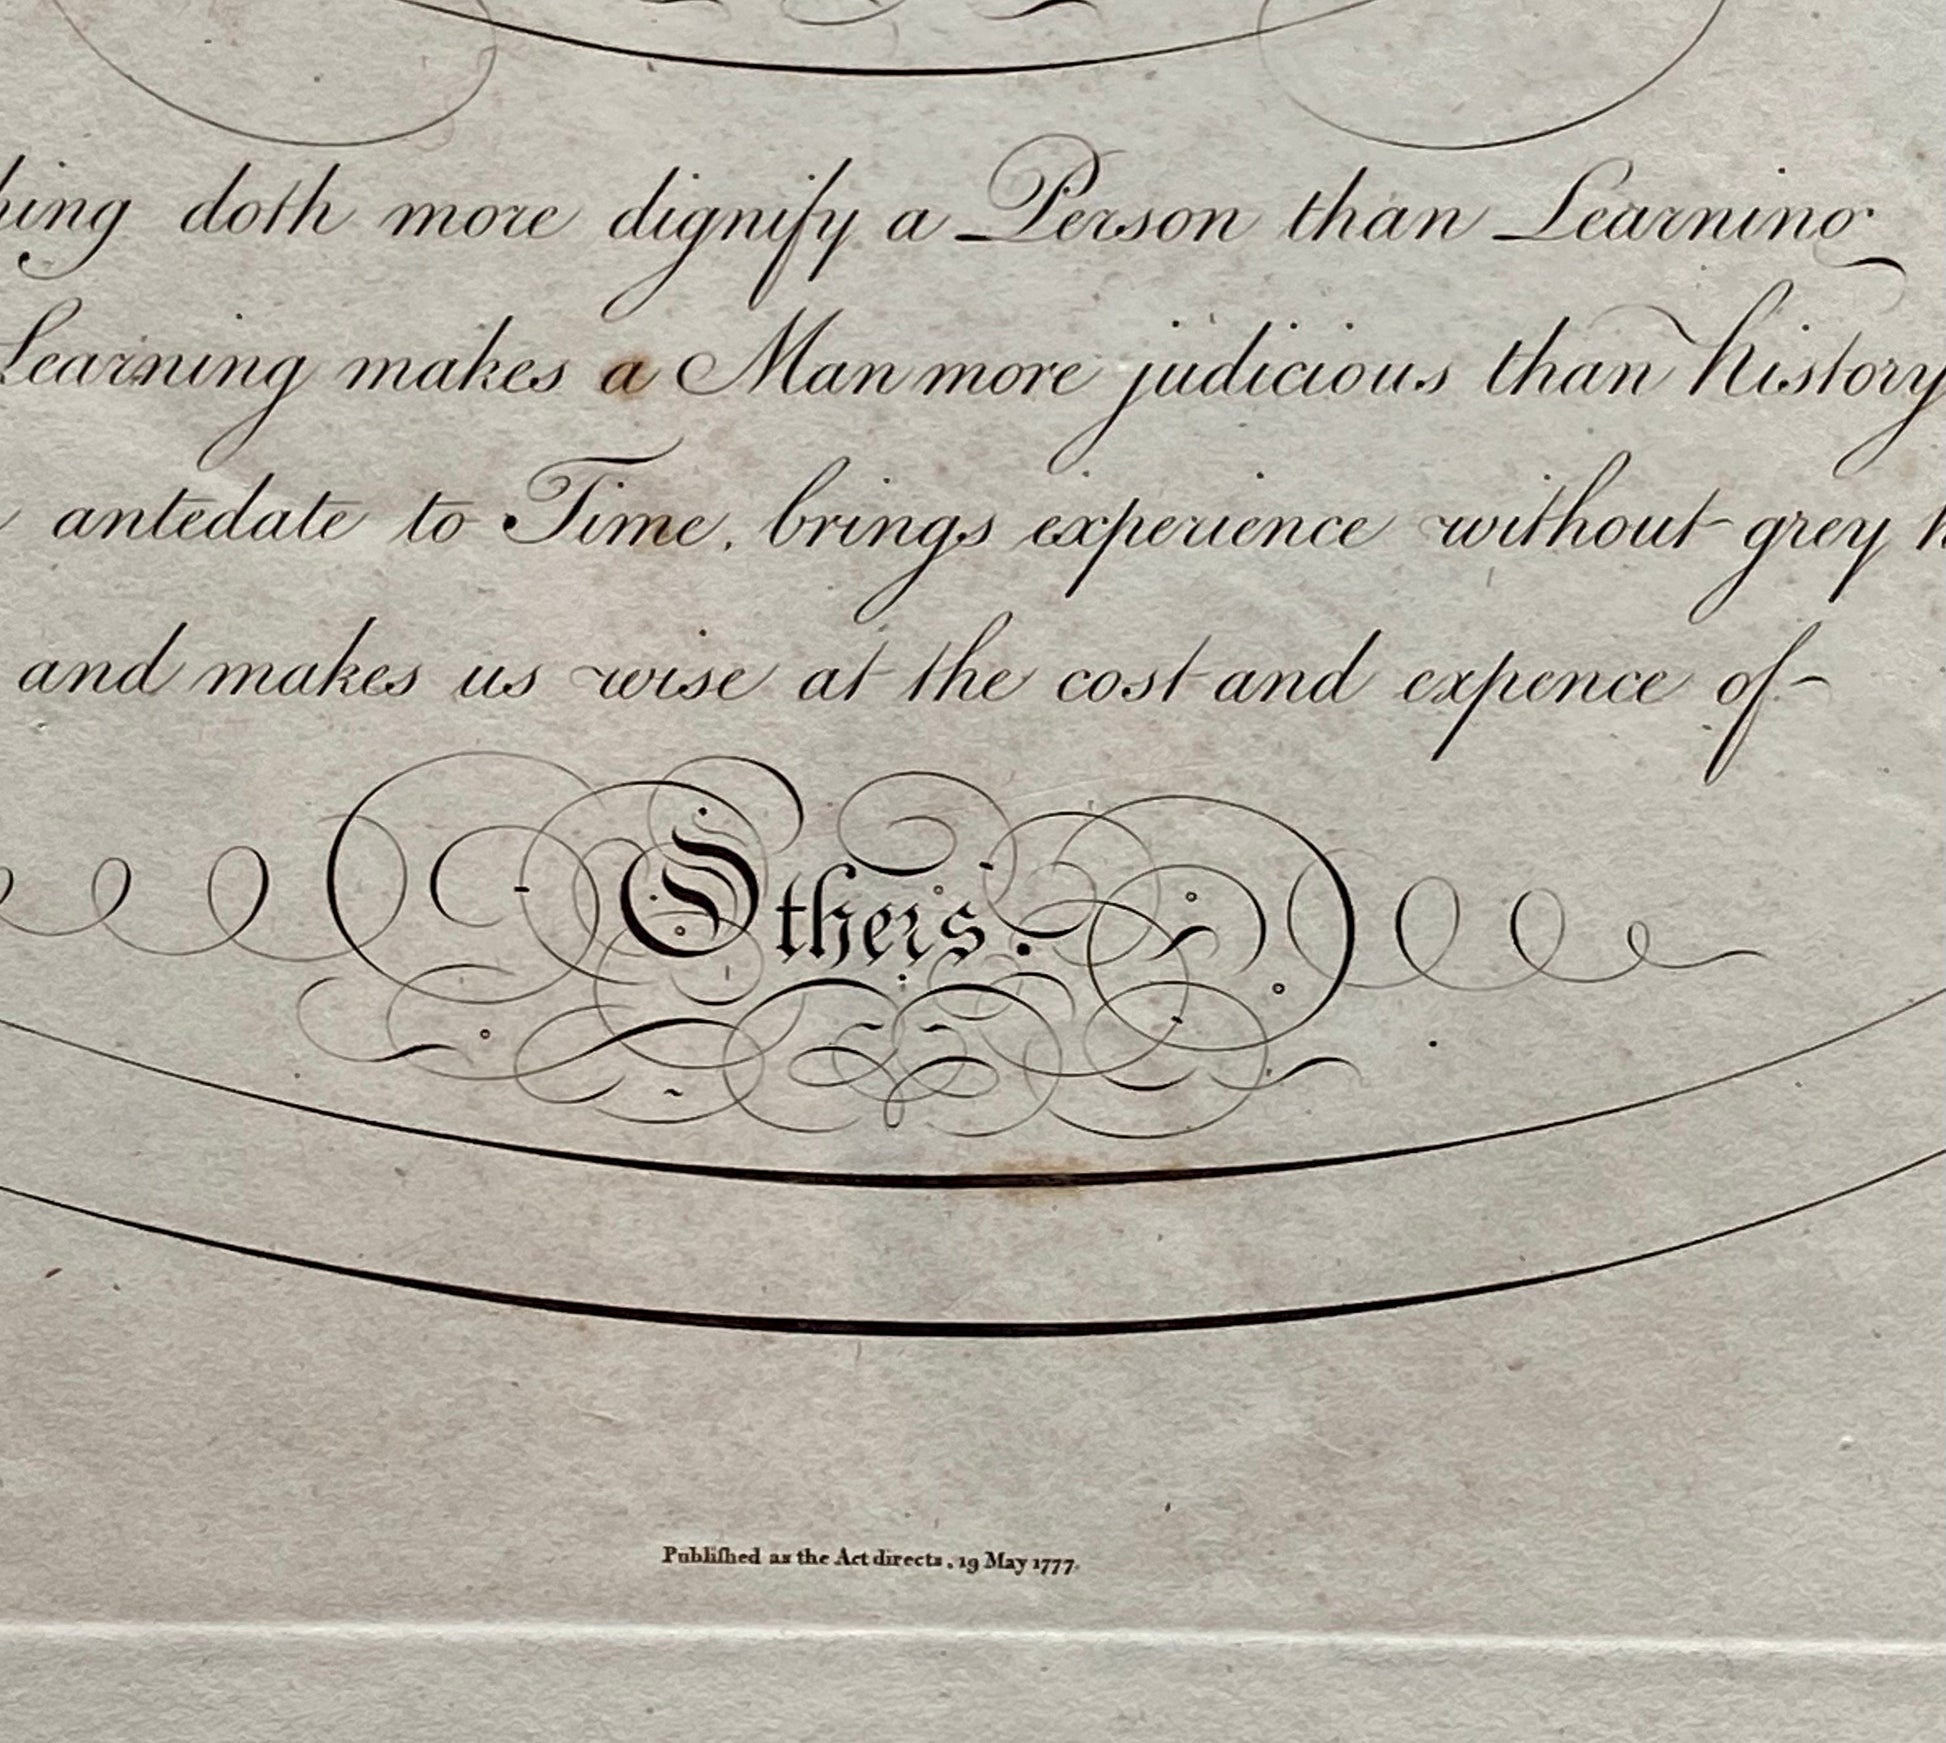 hing doth more dignify a Person than Learning
Learning makes a Man more judicious than history
antedate to Time, brings experience without grey h
and makes us wise at the cost and expence of
Others.
Publiſhed as the Act directs, 19 May 1777.